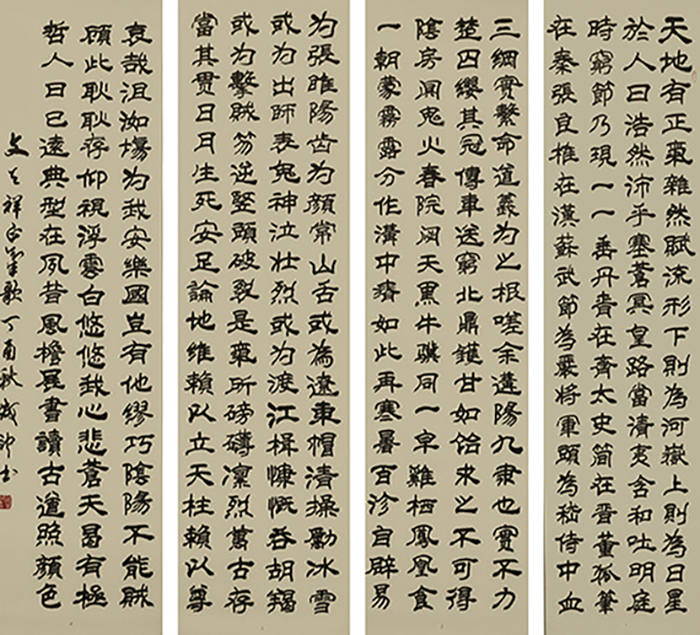 天地有正氣雜然賦流形下則為河嶽上則為日星
於人曰浩然沛乎塞蒼冥皇路當清夷含和吐明庭
時窮節乃現一一垂丹青在齊太史簡在晉董狐筆
在秦張良椎在漢蘇武節為嚴將軍頭為嵇侍中血
三綱實繫命道義為之根嗟余遘陽九隸也實不力
楚囚纓其冠傳車送窮北鼎鑊甘如飴求之不可得
陰房闃鬼火春院閟天黑牛驥同一皁雞栖鳳凰食
一朝蒙霧露分作溝中瘠如此再寒暑百沴自辟易
为張睢陽齒为顏常山舌或為遼東帽清操勵冰雪
或为出師表鬼神泣壯烈或为渡江楫慷慨吞胡羯
或为擊賊笏逆豎頭破裂是氣所磅礴凜烈萬古存
當其貫日月生死安足論地維賴以立天柱賴以尊
哀哉沮洳場为我安樂國豈有他繆巧陰陽不能賊
顧此耿耿存仰視浮雲白悠悠我心悲蒼天曷有極
哲人日已遠典型在夙昔風檐展書讀古道照顏色
文天祥正氣歌丁酉秋